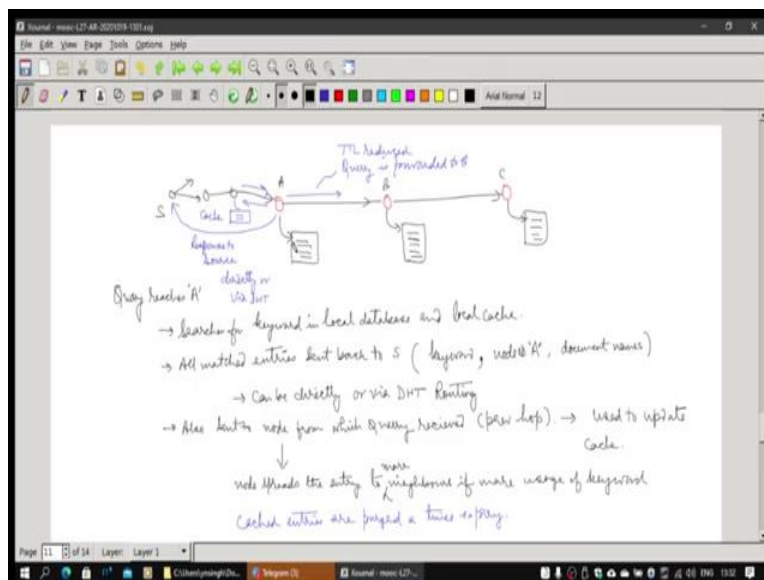 Xournal - mooc-L27-AR-20201019-1301.xoj
File Edit View Page Tools Options Help
Arial Normal 12
TTL reduced
Query is forwarded to B
A
B
C
S
Cache
Response to
Source
directly or
via DHT
Query reaches 'A'
→ Searches for keyword in local database and local cache.
→ All matched entries sent back to S ( keyword, nodeid 'A', document names)
→ Can be directly or via DHT Routing
→ Also sent to node from which Query recieved (prev hop). → Used to update
Cache.
more
node spreads the entry to neighbours if more usage of keyword
Cached entries are purged a timer expiry.
Page 11 of 14 Layer: Layer 1
C:\Users\ynsingh\Do... Telegram (3) Xournal - mooc-L27-... ENG 13:02